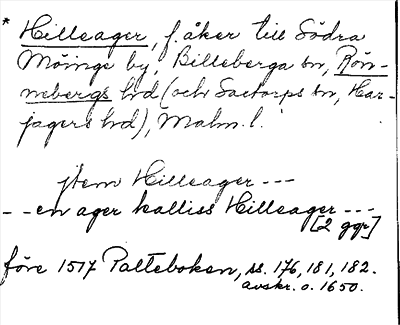 * Hilleager, f. åker till Södra
Möinge by, Billeberga sn, Rön-
nebergs hd (och Saxtorps sn, Har-
jagers hd), Malm. l.
jtem Hilleager ---
-- en ager kalliss Hilleager ---
[2 ggr]
före 1517 Palteboken, ss. 176, 181, 182.
avskr. o. 1650.